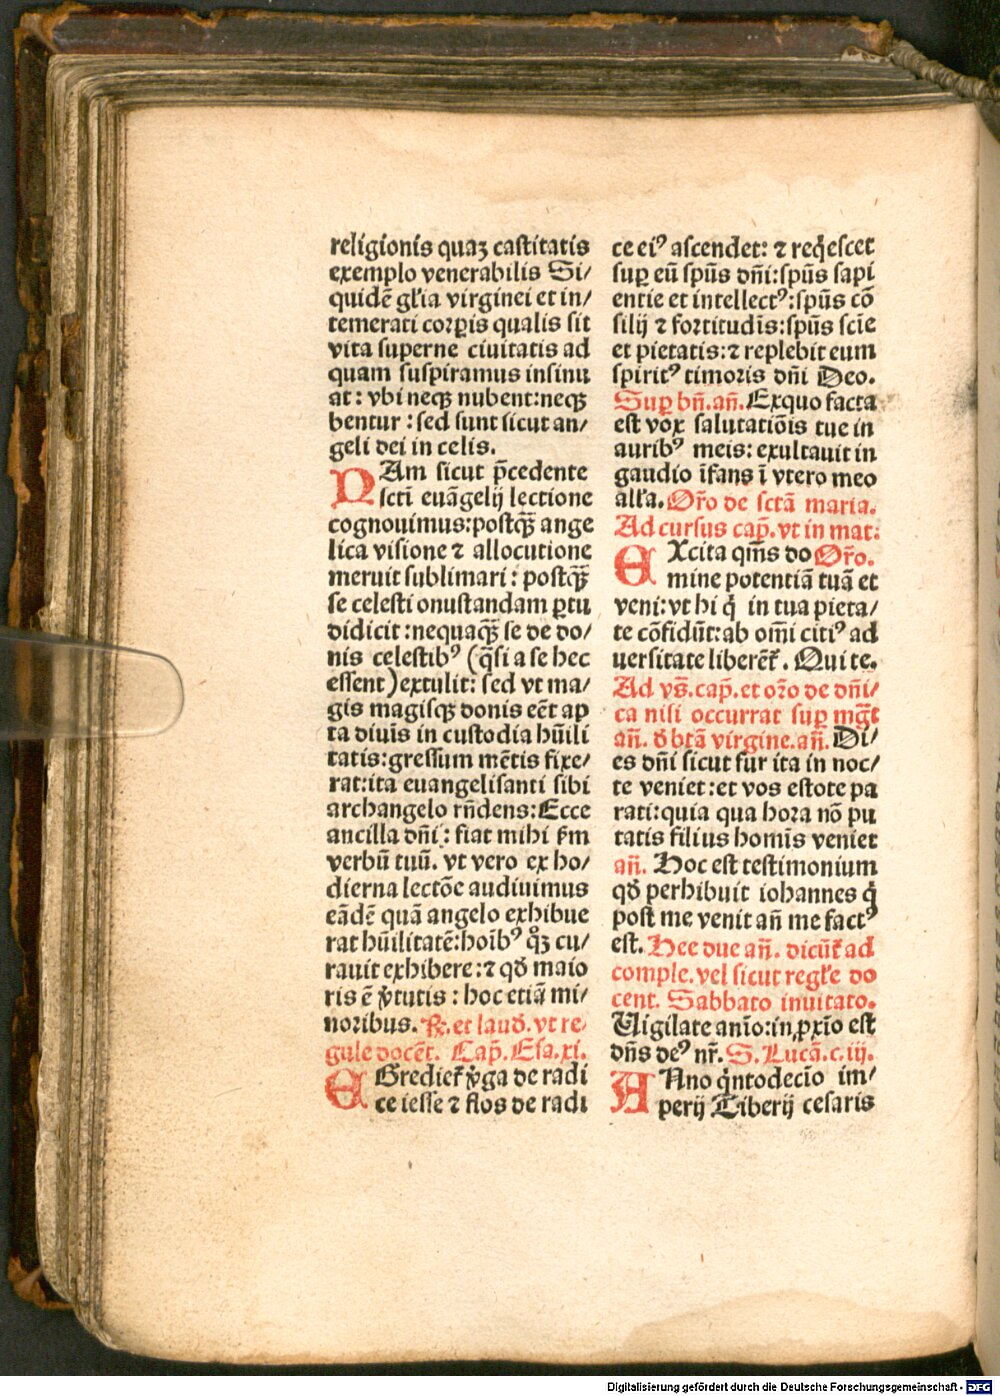 religionis quaꝫ castitatis
exemplo venerabilis Si/
quidē gl'ia virginei et in/
temerati corꝑis qualis sit
vita superne ciuitatis ad
quam suspiramus insinu
at: vbi neqꝫ nubent:neqꝫ
bentur : sed sunt sicut an/
geli dei in celis.
NAm sicut p̄cedente
sctī euāgelij lectione
cognouimus:postqꝫ̄ ange
lica visione ⁊ allocutione
meruit sublimari : postqꝫ̄
se celesti onustandam ꝑtu
didicit :nequaqꝫ̄ se de do/
nis celestibꝰ (q̄si a se hec
essent) extulit: sed vt ma/
gis magisqꝫ donis eēt ap
ta diuīs in custodia hūili
tatis:gressum mētis fixe/
rat:ita euangelisanti sibi
archangelo rn̄dens:Ecce
ancilla dn̄i : fiat mihi ẜm
verbū tuū. vt vero ex ho/
dierna lectōe audiuimus
eādē quā angelo exhibue
rat hūilitatē:hoībꝰ qͦꝫ cu/
rauit exhibere:⁊ qđ maio
ris ē v̓tutis : hoc etiā mi/
noribus. ℟. et laud̓. vt re/
gule docēt. Cap̄. Esa.xi.
EGrediet᷑ v̓ga de radi
ce iesse ⁊ flos de radi
ce eiꝰ ascendet: ⁊ reqͥescet
suꝑ eū spūs dn̄i:spūs sapi
entie et intellectꝰ:spūs cō
silij ⁊ fortitudīs:spūs scīe
et pietatis:⁊ replebit eum
spiritꝰ timoris dn̄i Deo.
Suꝑ bn̄.an̄. Exquo facta
est vox salutatiōis tue in
auribꝰ meis: exultauit in
gaudio īfans ī vtero meo
all'a. Or̄o de sctā maria.
Ad cursus cap̄. vt in mat:
EXcita qm̄s do Or̄o.
mine potentiā tuā et
veni:vt hi qͥ in tua pieta/
te cōfidūt:ab om̄i citiꝰ ad
uersitate liberēt᷑. Qui te.
Ad vs̄. cap̄. et or̄o de dn̄i/
ca nisi occurrat suꝑ mḡt
an̄. đ btā virgine.an̄. Di/
es dn̄i sicut fur ita in noc/
te veniet :et vos estote pa
rati:quia qua hora nō pu
tatis filius homīs veniet
an̄. Hoc est testimonium
qđ perhibuit iohannes qͥ
post me venit an̄ me factꝰ
est. Hee due an̄. dicūt᷑ ad
comple. vel sicut regl'e do
cent. Sabbato inuitato.
Uigilate anīo:in ꝓxīo est
dn̄s deꝰ nr̄. S. Lucā.c.iij.
ANno qͥntodecīo im/
perij Tiberij cesaris
Digitalisierung gefördert durch die Deutsche Forschungsgemeinschaft - DFG